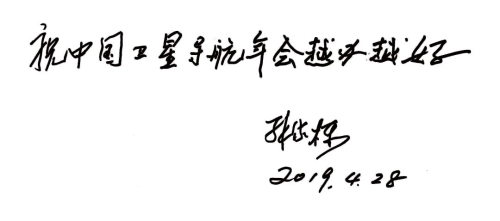 祝中国卫星导航年会越办越好
2019.4.28